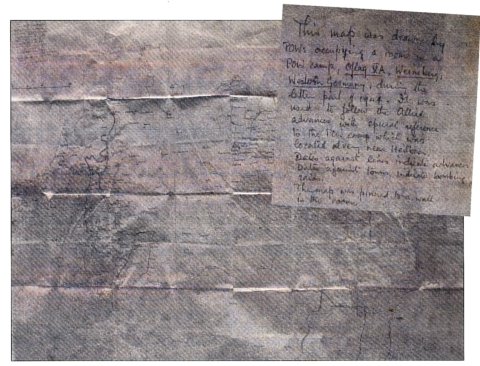 This map was drawn by
POWs occupying a room in a
POW camp, Oflag VA, Weinsberg,
Western Germany, during the
latter part of 1944. It was
used to follow the Allied
advances with special reference
to the POW camp which was
located at
Dates against lines indicate advances
Dates against towns indicate bombing
raids.
The map was pinned to a wall
in the room